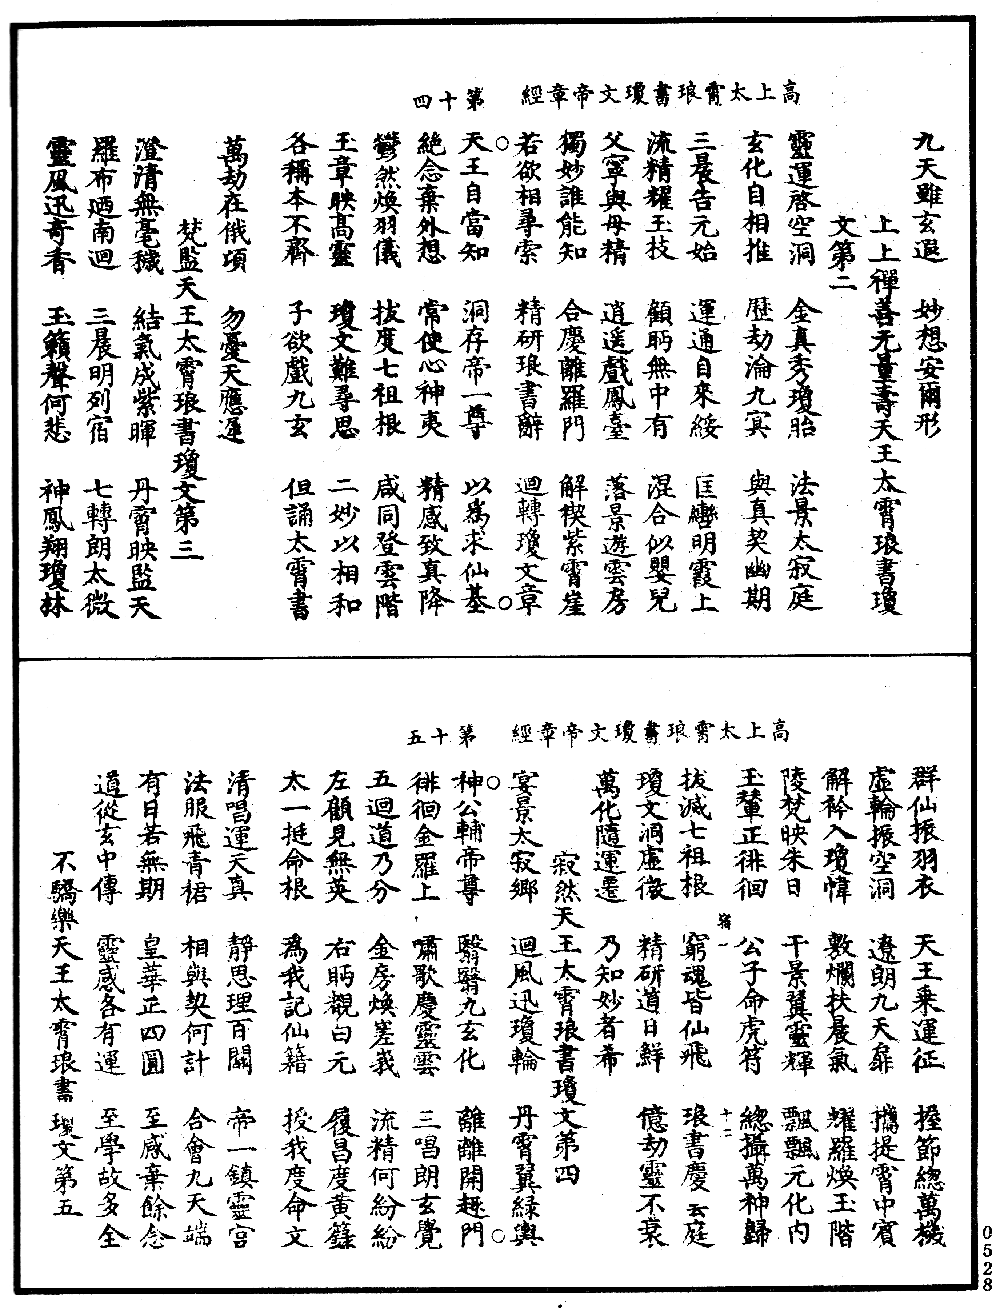 高上太霄琅書瓊文帝章經　第十四
九天雖玄遐　妙想安爾形
上上禪善无量壽天王太霄琅書瓊
文第二
靈運啓空洞　金真秀瓊胎　法景太寂庭
玄化自相推　歷劫淪九冥　與真契幽期
三晨告元始　運通自來綏　匡轡明霞上
流精耀玉技　顧眄無中有　混合似嬰兒
父寧與母精　逍遥戲鳳臺　落景遊雲房
獨妙誰能知　合慶離羅門　解楔紫霄崖
若欲相尋索　精研琅書辭　迴轉瓊文章
天王自當知　洞存帝一尊　以爲求仙基
絶念棄外想　常使心神夷　精感致真降
鬱然煥羽儀　拔度七祖根　咸同登雲階
玉章映高靈　瓊文難尋思　二妙以相和
各稱本不齊　子欲戲九玄　但誦太霄書
萬劫在俄頃　勿憂天應遲
梵監天王太霄琅書瓊文第三
澄清無毫穢　結氣成紫暉　丹霄映監天
羅布迺南迴　三晨明列宿　七轉朗太微
靈風迅奇香　玉籟聲何悲　神鳳翔瓊林
高上太霄琅書瓊文帝章經　第十五
群仙振羽衣　天王乘運征　握節總萬機
虛輪振空洞　遼朗九天扉　攜提霄中賓
解衿入瓊幃　敷爛扶晨氣　耀羅煥玉階
陵梵映朱日　千景翼靈輝　飄飄元化内
玉輦正徘徊　公子命虎符　總攝萬神歸
拔滅七祖根　窮魂皆仙飛　琅書慶雲庭
瓊文洞虛微　精研道日鮮　億劫靈不衰
萬化隨運遷　乃知妙者希
寂然天王太霄琅書瓊文第四
宴景太寂鄉　迴風迅瓊輪　丹霄翼緑輿
神公輔帝尊　翳翳九玄化　離離開趣門
徘徊金羅上　嘯歌慶靈雲　三唱朗玄覺
五迴道乃分　金房煥嵳峩　流精何紛紛
左顧見無英　右眄觀白元　履昌度黄籙
太一挺命根　爲我記仙籍　授我度命文
清唱運天真　靜思理百關　帝一鎮靈宫
法服飛青裙　相與契何計　合會九天端
有日若無期　皇華正四圓　至感棄餘念
道從玄中傳　靈感各有運　至學故多全
不驕樂天王太霄琅書瓊文第五
0528